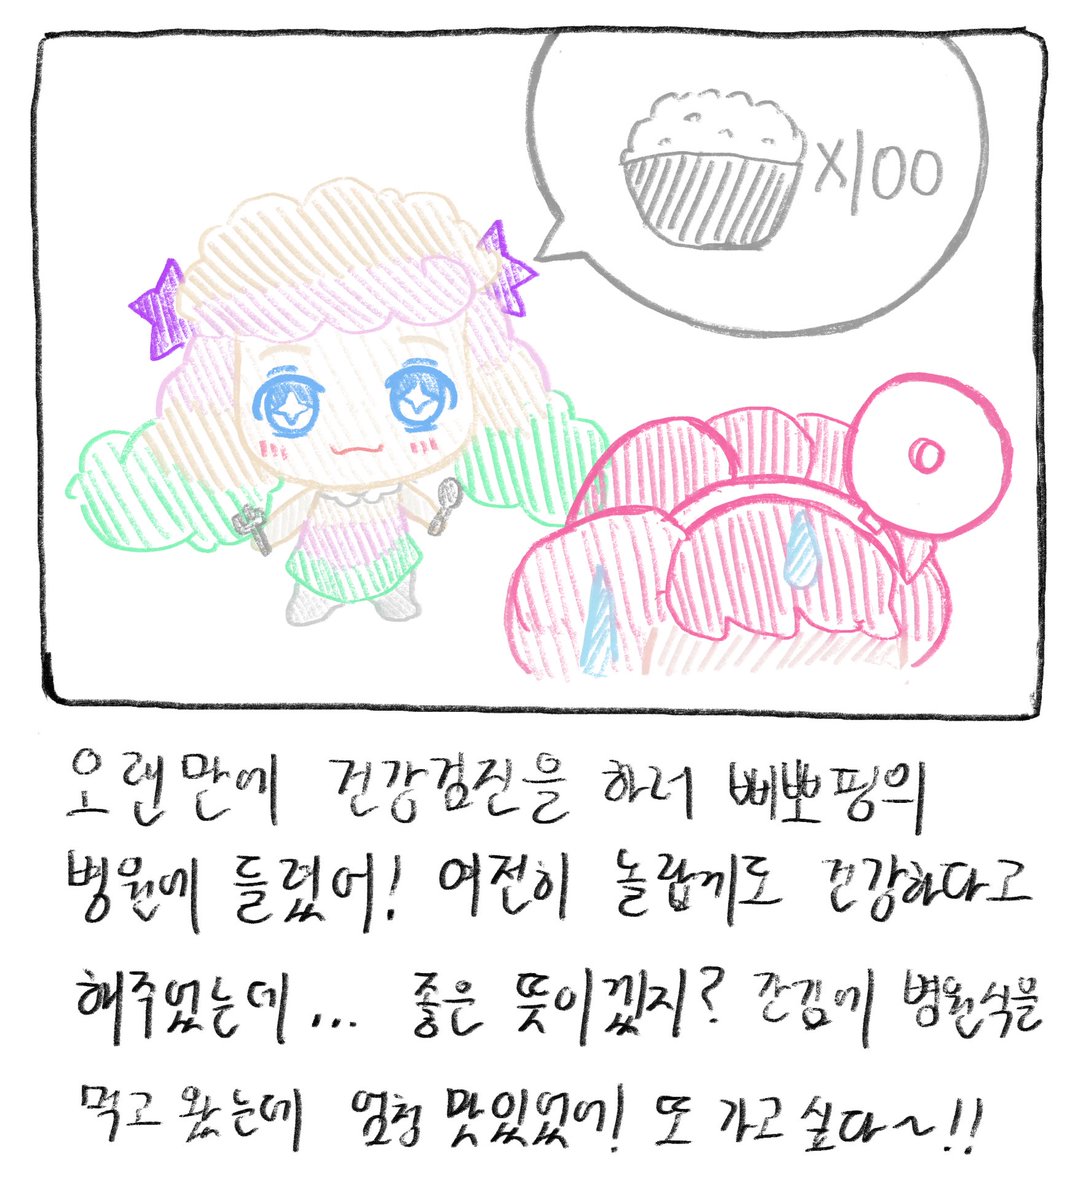 x100
오랜만에 건강검진을 하러 삐뽀핑의
병원에 들렀어! 여전히 놀랍게도 건강하다고
해주었는데... 좋은 뜻이겠지? 간김에 병원식을
먹고 왔는데 엄청 맛있었어! 또 가고 싶다~!!